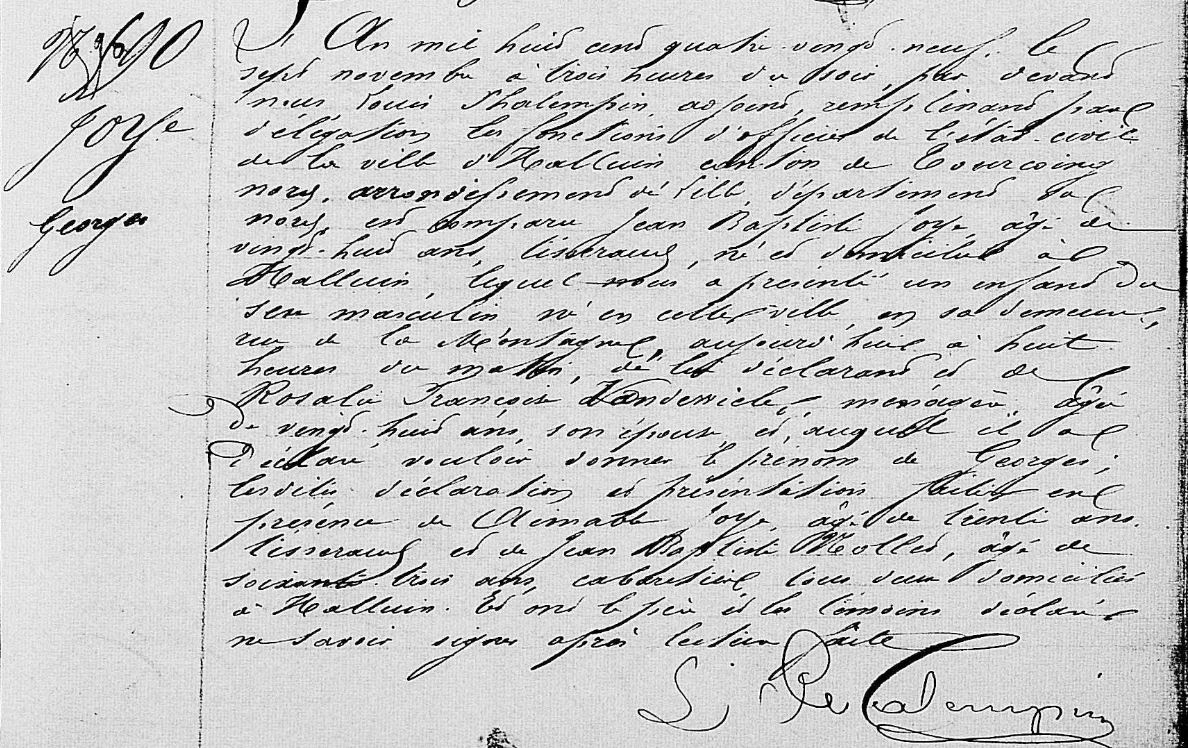 Joye
Georges
L'An mil huit cent quatre-vingt-neuf, le
sept novembre à trois heures du soir, par devant
nous Louis adjoint, remplissant par
délégation les fonctions d'officier de l'état-civil
de la ville d'Halluin canton de Tourcoing
nord, arrondissement de Lille, département du
nord, est comparu Jean Baptiste Joye, âgé de
vingt-huit ans, tisserand, né et domicilié à
Halluin, lequel nous a présenté un enfant du
sexe masculin né en cette ville, en sa demeure,
rue de la Montagne, aujourd'hui à huit
heures du matin, de lui déclarant et de
Rosalie Françoise Vandewiele, ménagère, âgée
de vingt-huit ans, son épouse, et, auquel il a
déclaré vouloir donner le prénom de Georges;
lesdites déclaration et présentation faites en
présence de Aimable Joye, âgé de trente ans,
tisserand et de Jean Baptiste Nolled, âgé de
soixante-trois ans, cabaretier tous deux domiciliés
à Halluin. Et ont le père et les témoins déclaré
ne savoir signer après lecture faite